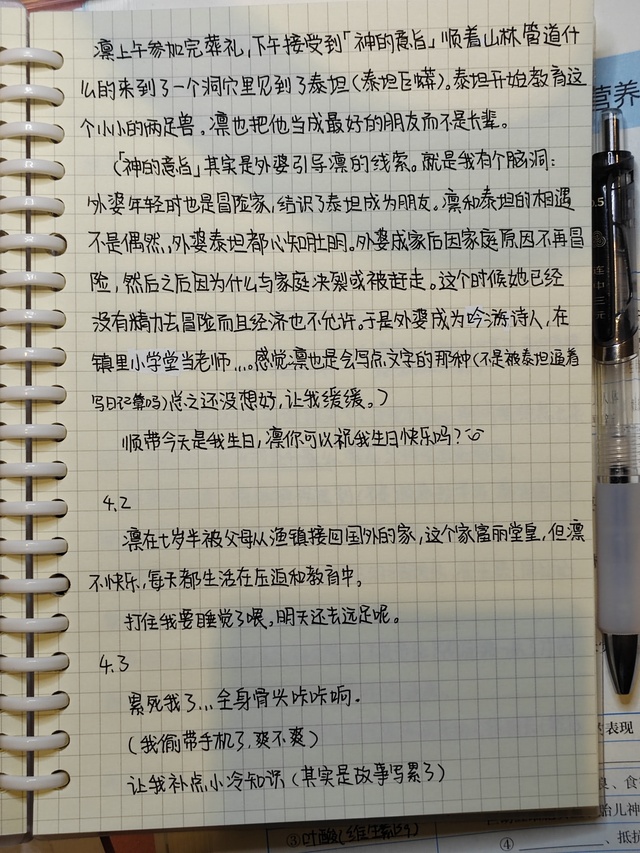 凛上午参加完葬礼,下午接受到「神的意旨」顺着山林管道什
么的来到了一个洞穴里见到了泰坦(泰坦巨蟒)。泰坦开始教育这
个小小的两足兽。凛也把他当成最好的朋友而不是长辈。
(「神的意旨」其实是外婆引导凛的线索。就是我有个脑洞:
外婆年轻时也是冒险家,结识了泰坦成为朋友。凛和泰坦的相遇
不是偶然,外婆泰坦都心知肚明。外婆成家后因家庭原因不再冒
险,然后之后因为什么与家庭决裂或被赶走。这个时候她已经
没有精力去冒险而且经济也不允许。于是外婆成为吟游诗人,在
镇里小学堂当老师...。感觉凛也是会写点文字的那种(不是被泰坦逼着
写日记算吗)总之还没想好,让我缓缓。)
顺带今天是我生日,凛你可以祝我生日快乐吗?
4.2
凛在七岁半被父母从渔镇接回国外的家,这个家富丽堂皇,但凛
不快乐,每天都生活在压迫和教育中。
打住我要睡觉了喂,明天还去远足呢。
4.3
累死我了...全身骨头咔咔响.
(我偷带手机了,爽不爽)
让我补点小冷知识(其实是故事写累了)
营养
0.5
连中三元
表现
良、食
胎儿神
③叶酸(维生素B9)
④
、抵抗